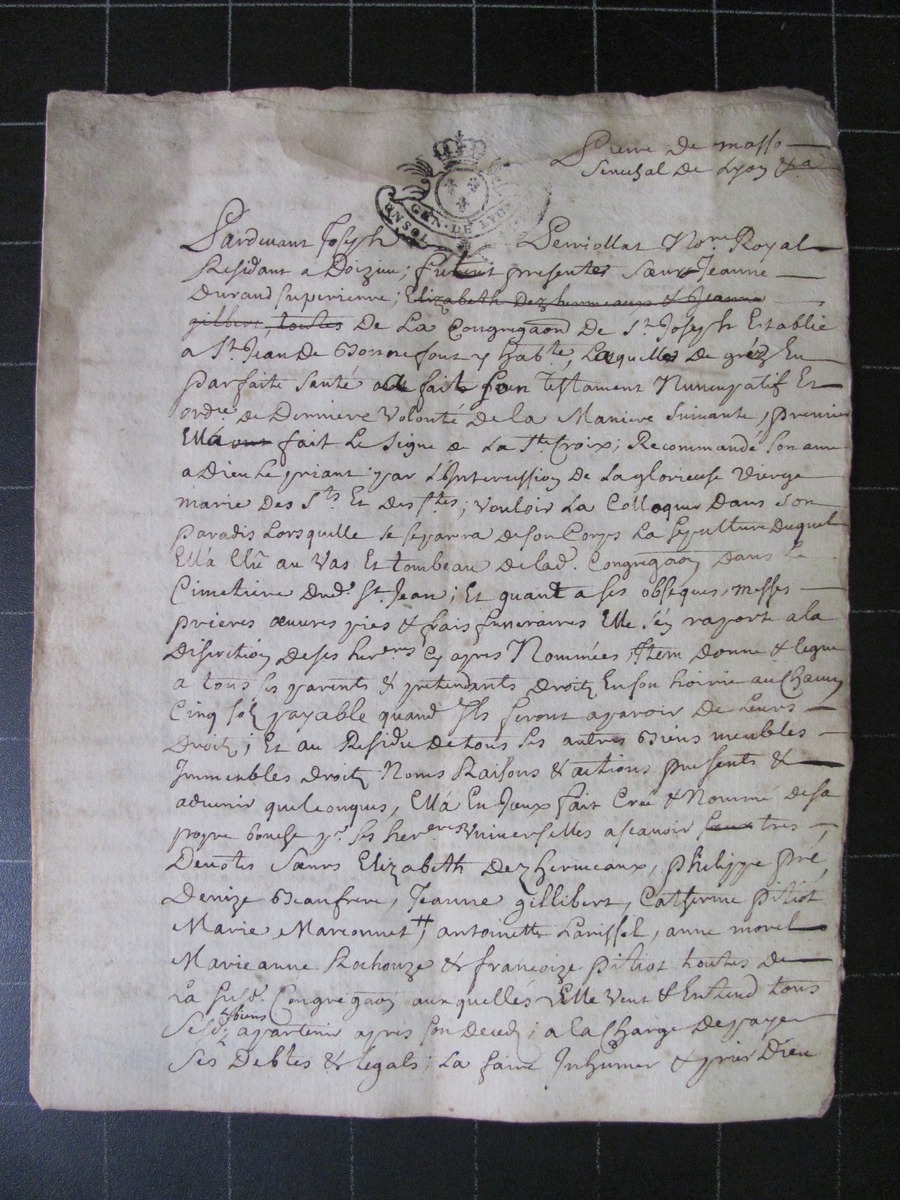 Pierre de masso
Senechal de Lyon &a
GEN · DE LYON
Pardevant Joseph Perriollat Nore Royal
Residant a Doizieu; fu presente Sœur Jeanne
Durand superieure; Elizabeth dezhermeaux & Jeanne
gilbert, toutes De La Congregaon De St Joseph Establie
a St Jean De Bonnefont y habte, Laquelle De gréz En
parfaite Santé a fait son Testament Nuncupatif Et
ordre de Derniere Volonté de la Maniere Suivante, premier
Ellá ont fait Le Signe de La Ste Croix; Recommandé Son ame
a Dieu Le priant par L'Intercession De La glorieuse Vierge
marie Des Sts Et Destes; Vouloir La Colloquer Dans Son
paradis Lorsquille se separera de son Corps La Sepulture Duquel
Ellá Elû au Vas Et tombeau de lad. Congregaon dans Le
Cimetiere Dud. St. Jean; Et quant a ses obseques, messes
prieres œuvres pies & frais funeraires Elle s'en raport a la
Discretion de ses heres cy apres Nommées, Item donne & legue
a tous ses parents & pretendants Droitz En son hoirie au Chacun
Cinq solz payable quand Ils feront aparoir De Leurs
Droitz; Et au Residu de tous ses autres Biens meubles
Immeubles Droitz Noms Raisons & actions presents &
advenir quelconques, Ellá En Iceux fait Créé & Nommé de sa
propre bouche pr. ses heres Universelles ascavoir tres
Devotes Sœurs Elizabeth Dezhermeaux, philippe pré,
Denize Beaufrere, Jeanne gillibert, Catherine pitiot
Marie Marconnet #, antoinette Parissel, anne morel
Marieanne Rochouze & françoize pitiot toutes de
La susd. Congregaon auxquelles Elle Veut & Entend tous
biens
Sesdz apartenir apres son Deced; a la Charge De payer
Ses Debtes & legats; La faire Inhumer & prier Dieu